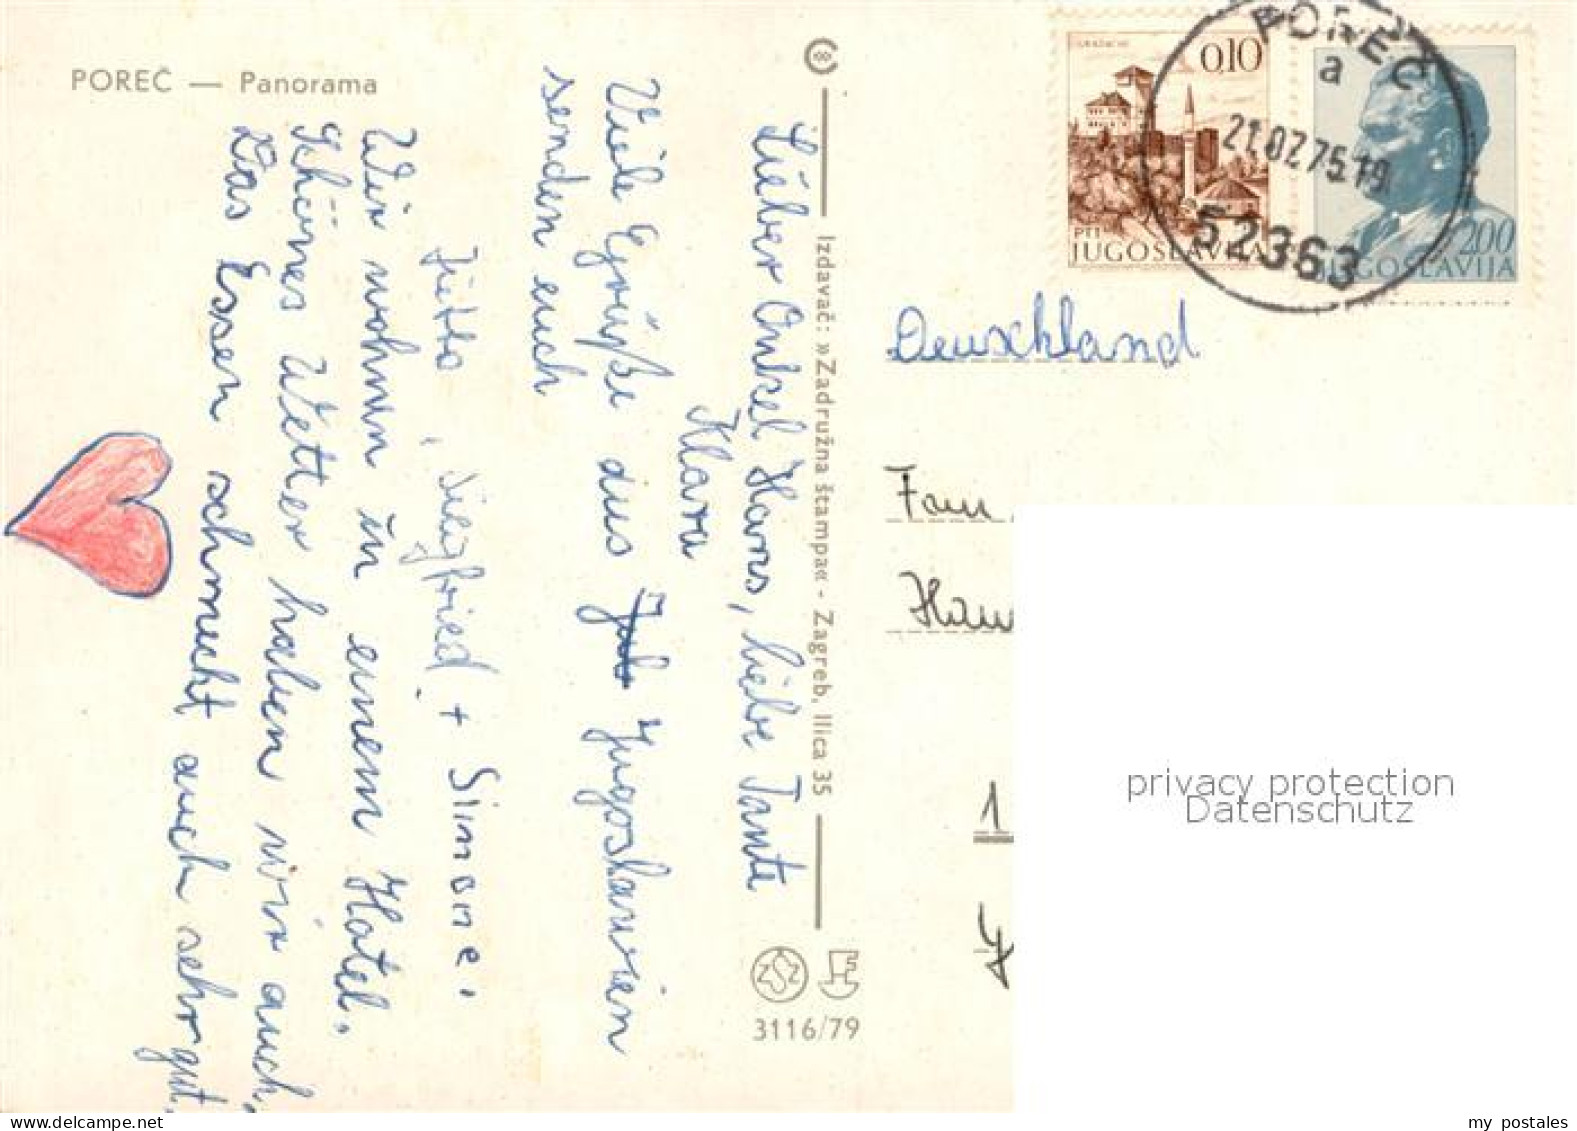 POREČ — Panorama
Lieber Onkel Hans, liebe Tante
Klara
Viele Grüße aus Jugoslawien
senden euch
Jutta, Siegfried + Simone.
Wir wohnen in einem Hotel.
Schönes Wetter haben wir auch.
Das Essen schmeckt auch sehr gut.
Izdavač: »Zadružna štampa« - Zagreb, Ilica 35
ZSZ
3116/79
0,10
PTT
JUGOSLAVIJA
2.00
JUGOSLAVIJA
POREČ
a
21.07.75.19
52363
Deuschland
Fam
Han
1
privacy protection
Datenschutz
www.delcampe.net
my_postales